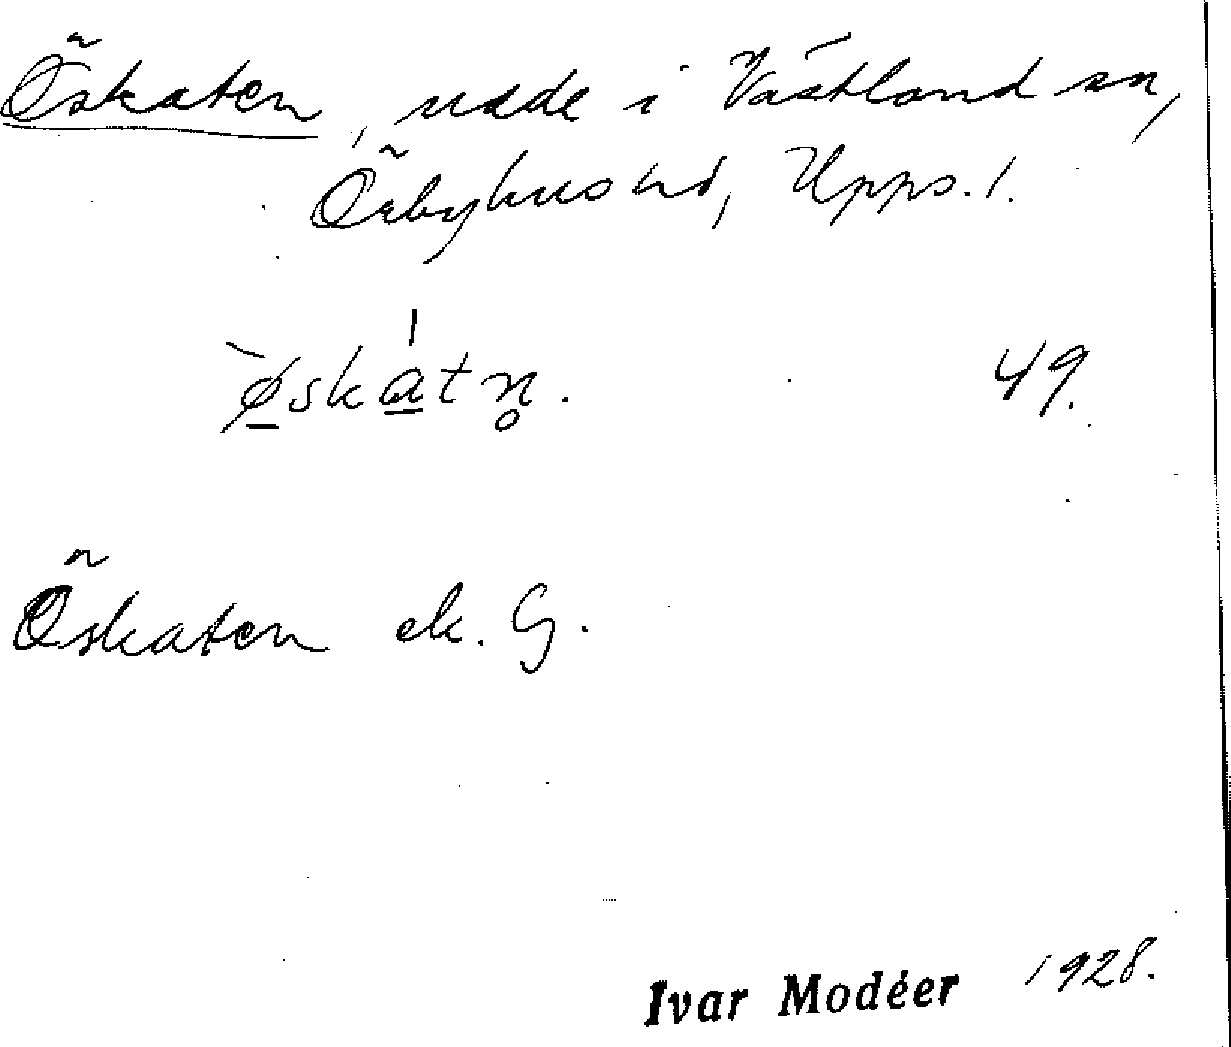 Öskaten, udde i Västland sn,
Örbyhus hd, Upps. l.
ø̀skátn̥. 49.
Öskaten ek. G.
Ivar Modéer 1928.